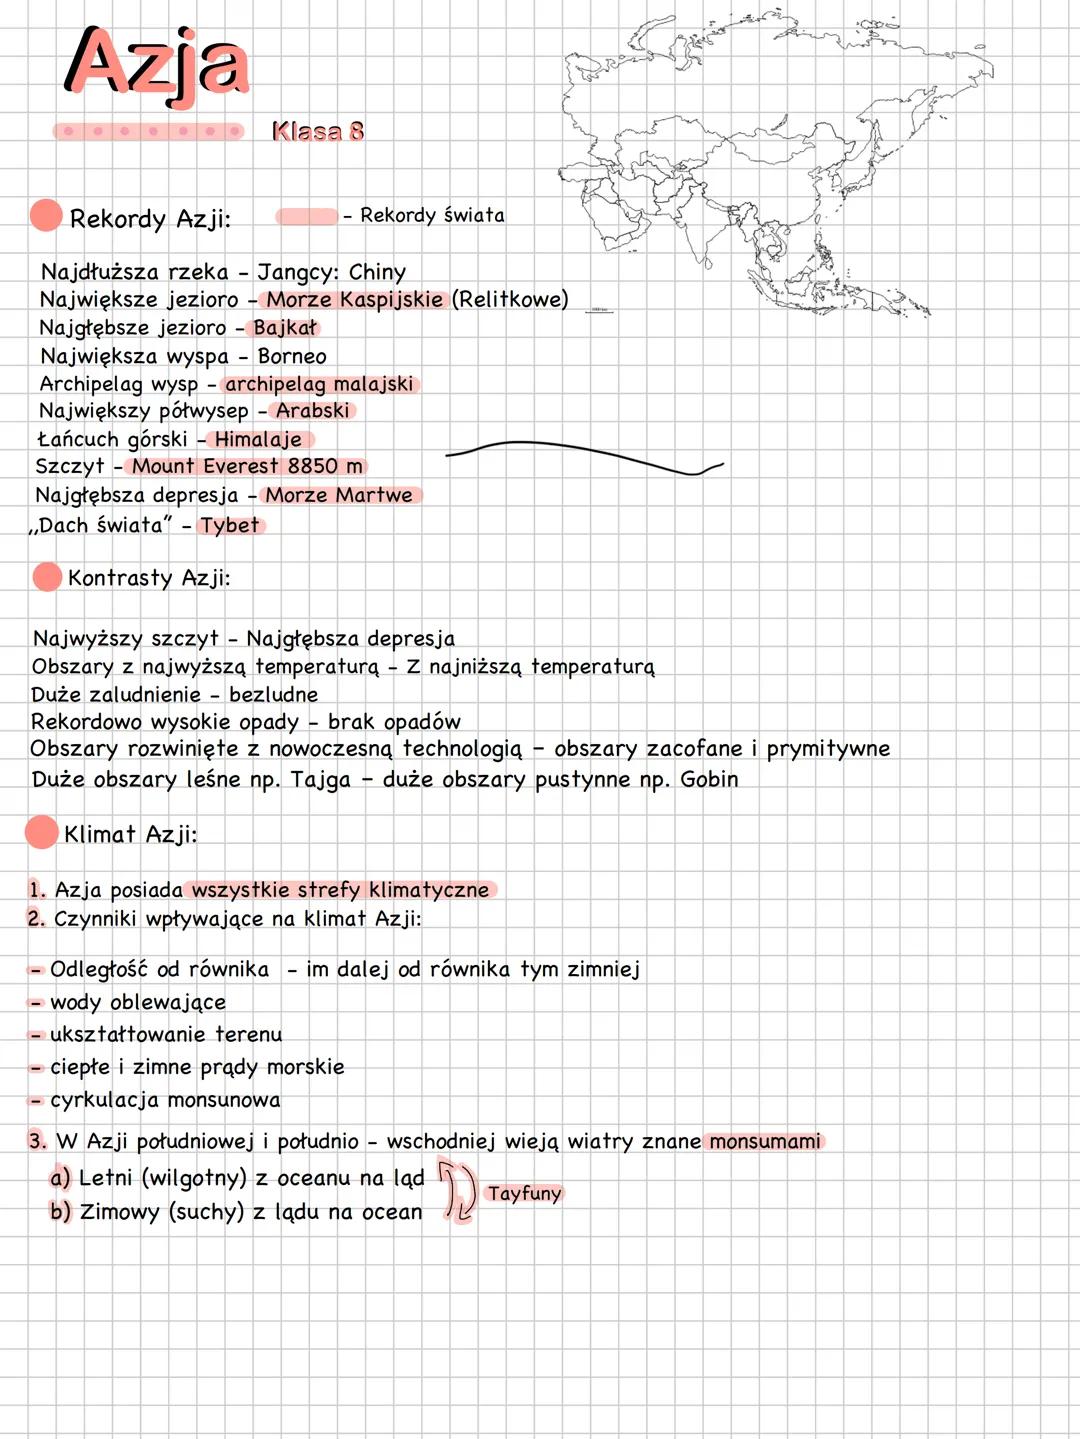 Azja
Klasa 8
Rekordy Azji:
- Rekordy świata
Najdłuższa rzeka - Jangcy: Chiny
Największe jezioro - Morze Kaspijskie (Relitkowe)
Najgłębsze jezioro - Bajkał
Największa wyspa - Borneo
Archipelag wysp - archipelag malajski
Największy półwysep - Arabski
Łańcuch górski - Himalaje
Szczyt - Mount Everest 8850 m
Najgłębsza depresja - Morze Martwe
,,Dach świata" - Tybet
Kontrasty Azji:
Najwyższy szczyt - Najgłębsza depresja
Obszary z najwyższą temperaturą - Z najniższą temperaturą
Duże zaludnienie - bezludne
Rekordowo wysokie opady - brak opadów
Obszary rozwinięte z nowoczesną technologią - obszary zacofane i prymitywne
Duże obszary leśne np. Tajga - duże obszary pustynne np. Gobin
Klimat Azji:
1. Azja posiada wszystkie strefy klimatyczne
2. Czynniki wpływające na klimat Azji:
- Odległość od równika - im dalej od równika tym zimniej
- wody oblewające
- ukształtowanie terenu
- ciepłe i zimne prądy morskie
- cyrkulacja monsunowa
3. W Azji południowej i południo - wschodniej wieją wiatry znane monsumami
a) Letni (wilgotny) z oceanu na ląd
b) Zimowy (suchy) z lądu na ocean
Tayfuny